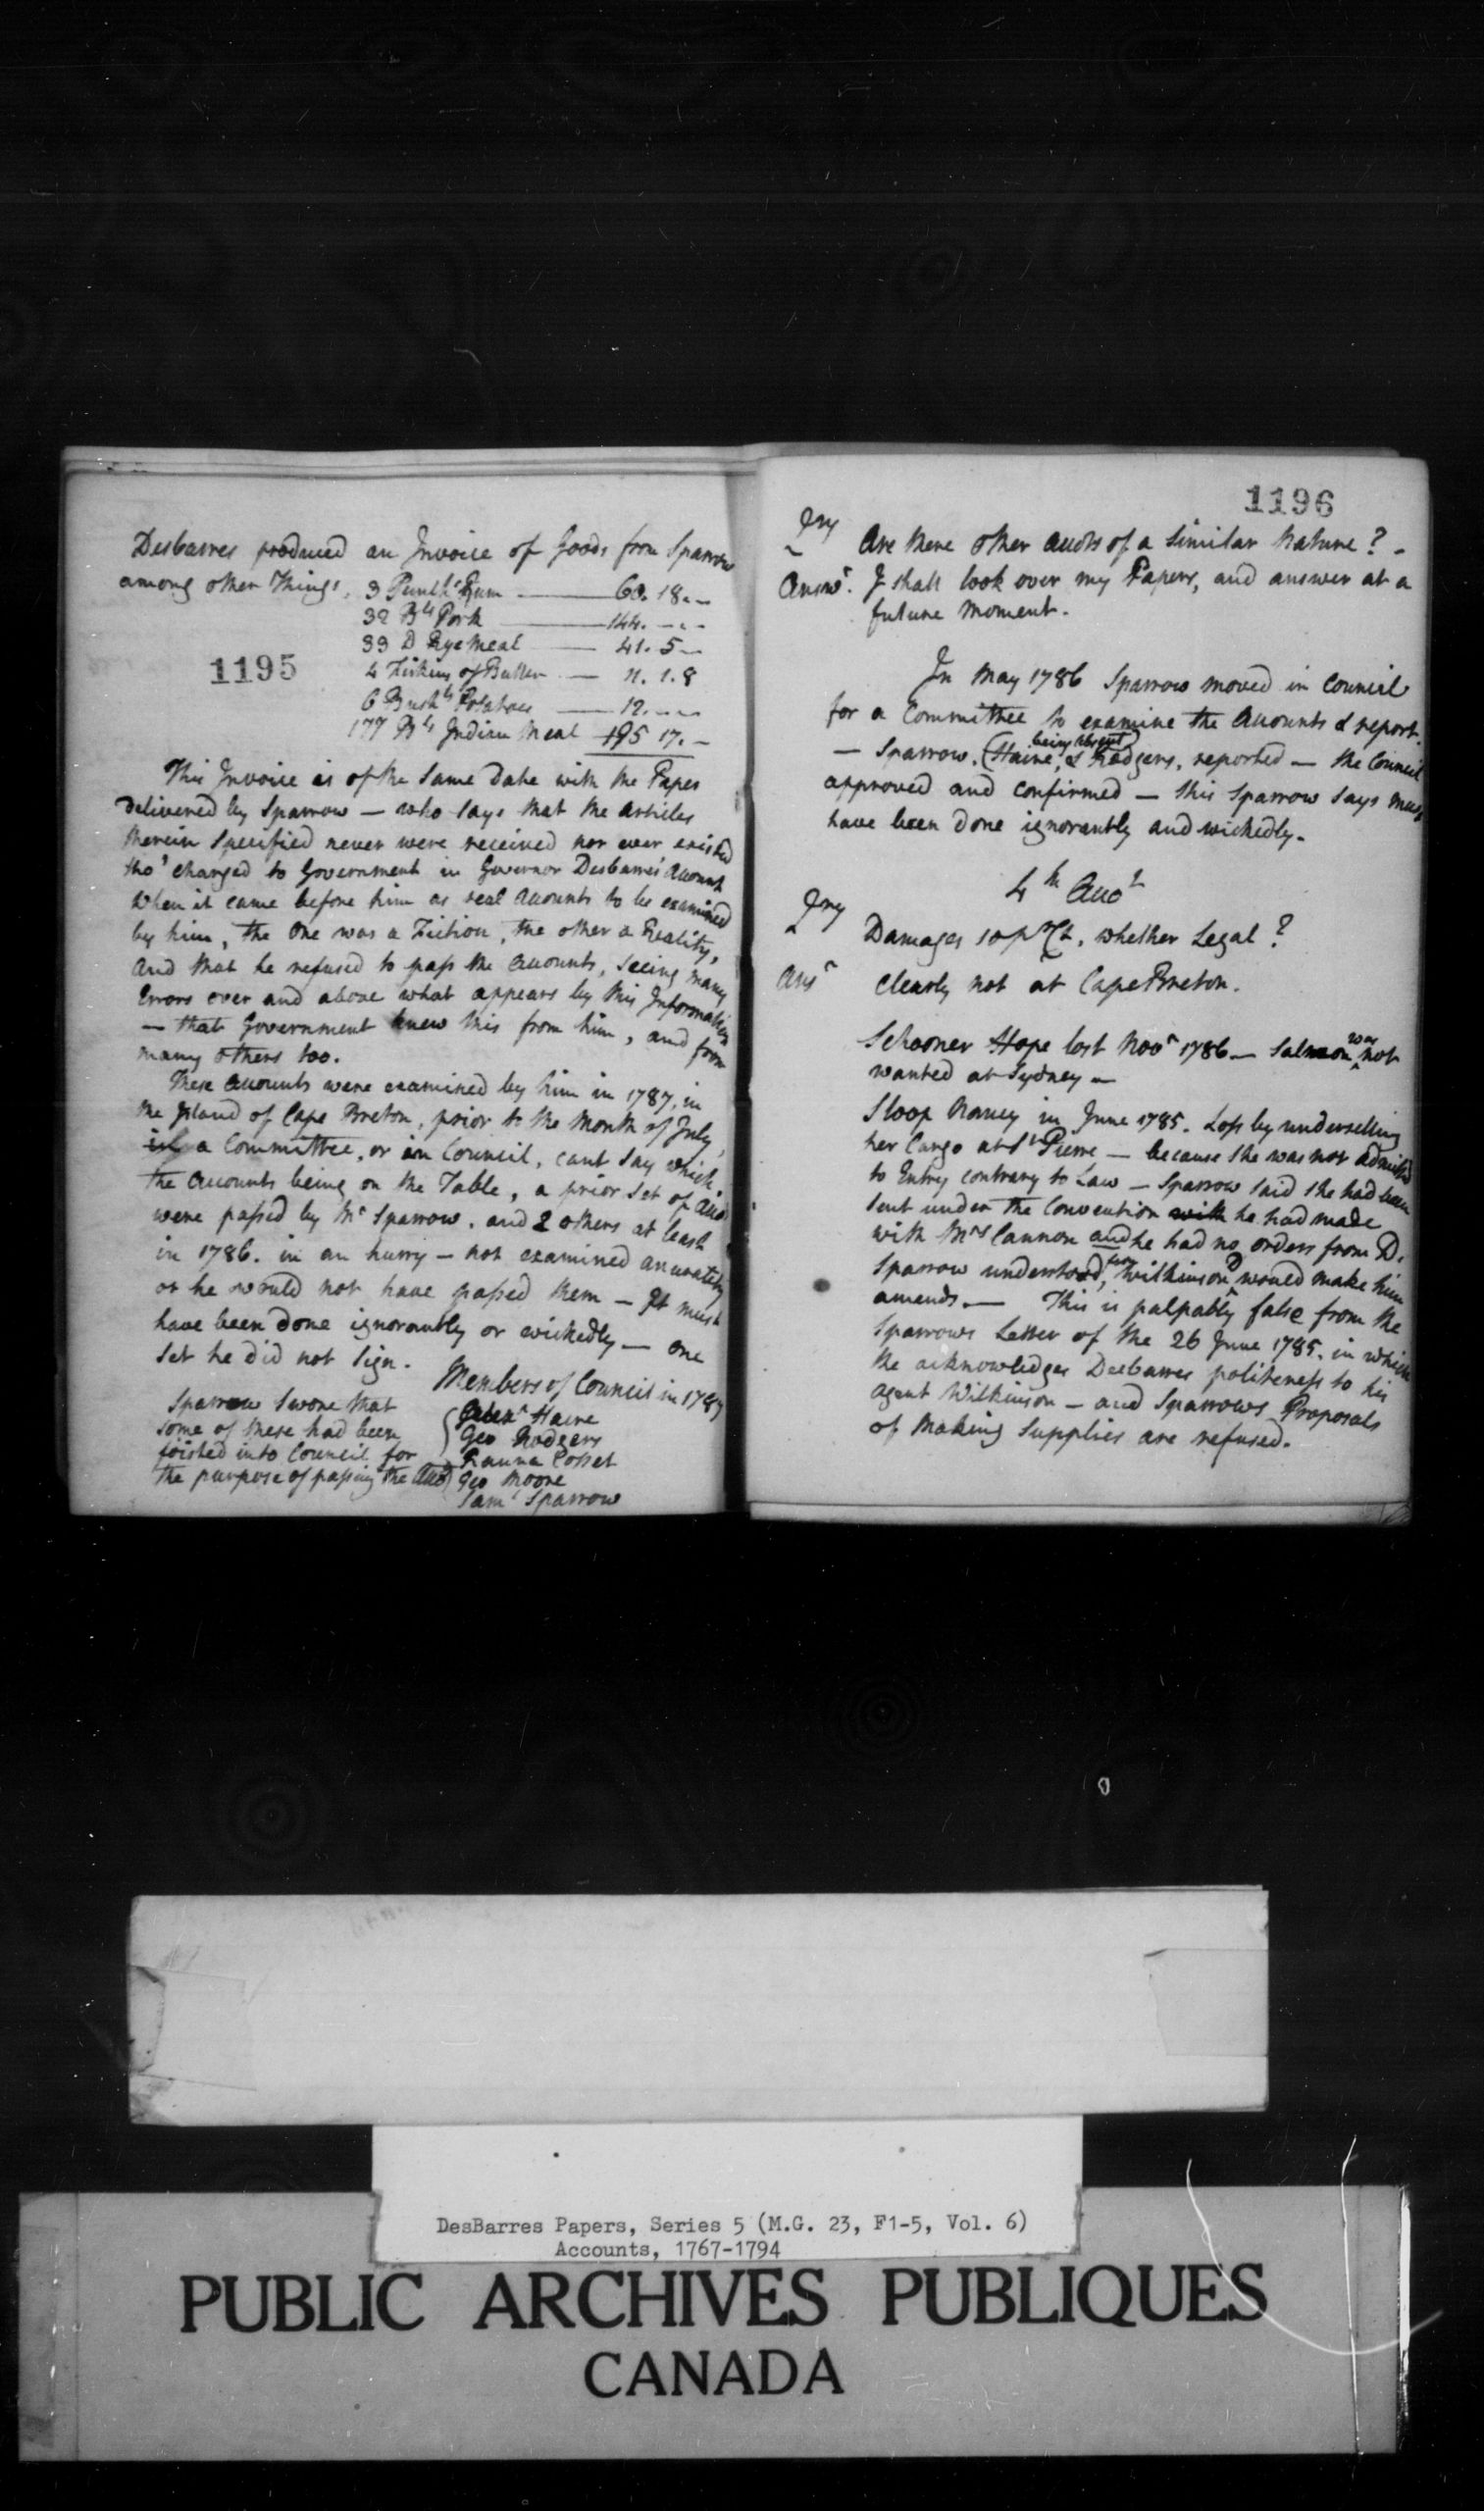 Desbarres produced an Invoice of Goods from Sparrow
among other Things, 3 Punchs Rum — 60. 18. -
32 Bls Pork — 144. - . -
33 D Rye Meal — 41. 5 -
1195
4 Firkins of Butter — 11. 1. 8
6 Bushls Potatoes — 12. - -
177 Bls Indian Meal 195 17. -
This Invoice is of the Same Date with the Paper
delivered by Sparrow — who says that the articles
therein Specified never were received nor ever existed
tho' charged to Government in Governor Desbarres' Account
when it came before him as real Accounts to be examined
by him, the One was a Fiction, the other a Reality,
and that he refused to pass the Accounts, seeing many
Errors over and above what appears by this Information
— that Government knew this from him, and from
many others too.
These Accounts were examined by him in 1787, in
the Island of Cape Breton, prior to the Month of July,
in a Committee, or in Council, cant say which
the Accounts being on the Table, a prior Set of Acco
were passed by Mr Sparrow, and 2 others at least
in 1786. in an hurry — not examined accurately
or he would not have passed them — It must
have been done ignorantly or wickedly — one
Set he did not Sign.
Members of Council in 1787
Sparrow Swore that
some of these had been
foisted into Council for
the purpose of passing the Acco
Alexr Haire
Geo Rodgers
Ranna Cosset
Geo Moore
Saml Sparrow
1196
Qry Are there other Accots of a Similar Nature? -
Answr. I shall look over my Papers, and answer at a
future Moment.
In May 1786 Sparrow moved in Council
for a Committee to examine the Accounts & report.
— Sparrow, (Haire, being absent) & Rodgers, reported — the Council
approved and confirmed — this Sparrow Says must
have been done ignorantly and wickedly.
4th Acct
Qry Damages 10 pr Ct, whether Legal?
Ansr Clearly not at Cape Breton.
Schooner Hope lost Novr 1786 — Salmon was not
wanted at Sydney —
Sloop Nancy in June 1785. Loss by underselling
her Cargo at St Pierre — because She was not admitted
to Entry contrary to Law — Sparrow said She had been
Sent under the Convention with he had made
with Mrs Cannon and he had no orders from D.
Sparrow understood, from Wilkinson D would make him
amends. — This is palpably false from the
Sparrows Letter of the 26 June 1785. in which
he acknowledges Desbarres politeness to his
agent Wilkinson — and Sparrows Proposals
of Making Supplies are refused.
DesBarres Papers, Series 5 (M.G. 23, F1-5, Vol. 6)
Accounts, 1767-1794
PUBLIC ARCHIVES PUBLIQUES
CANADA